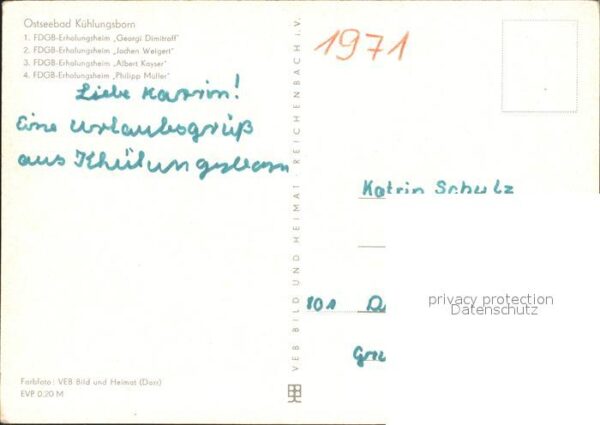 Ostseebad Kühlungsborn
1. FDGB-Erholungsheim „Georgi Dimitroff"
2. FDGB-Erholungsheim „Jochen Weigert"
3. FDGB-Erholungsheim „Albert Kayser"
4. FDGB-Erholungsheim „Philipp Müller"
1971
Liebe Katrin!
Eine Urlaubsgrüß
aus Khülungsborn
VEB BILD UND HEIMAT · REICHENBACH i. V.
Katrin Schulz
801 D
privacy protection
Datenschutz
Farbfoto: VEB Bild und Heimat (Dorr)
EVP 0,20 M